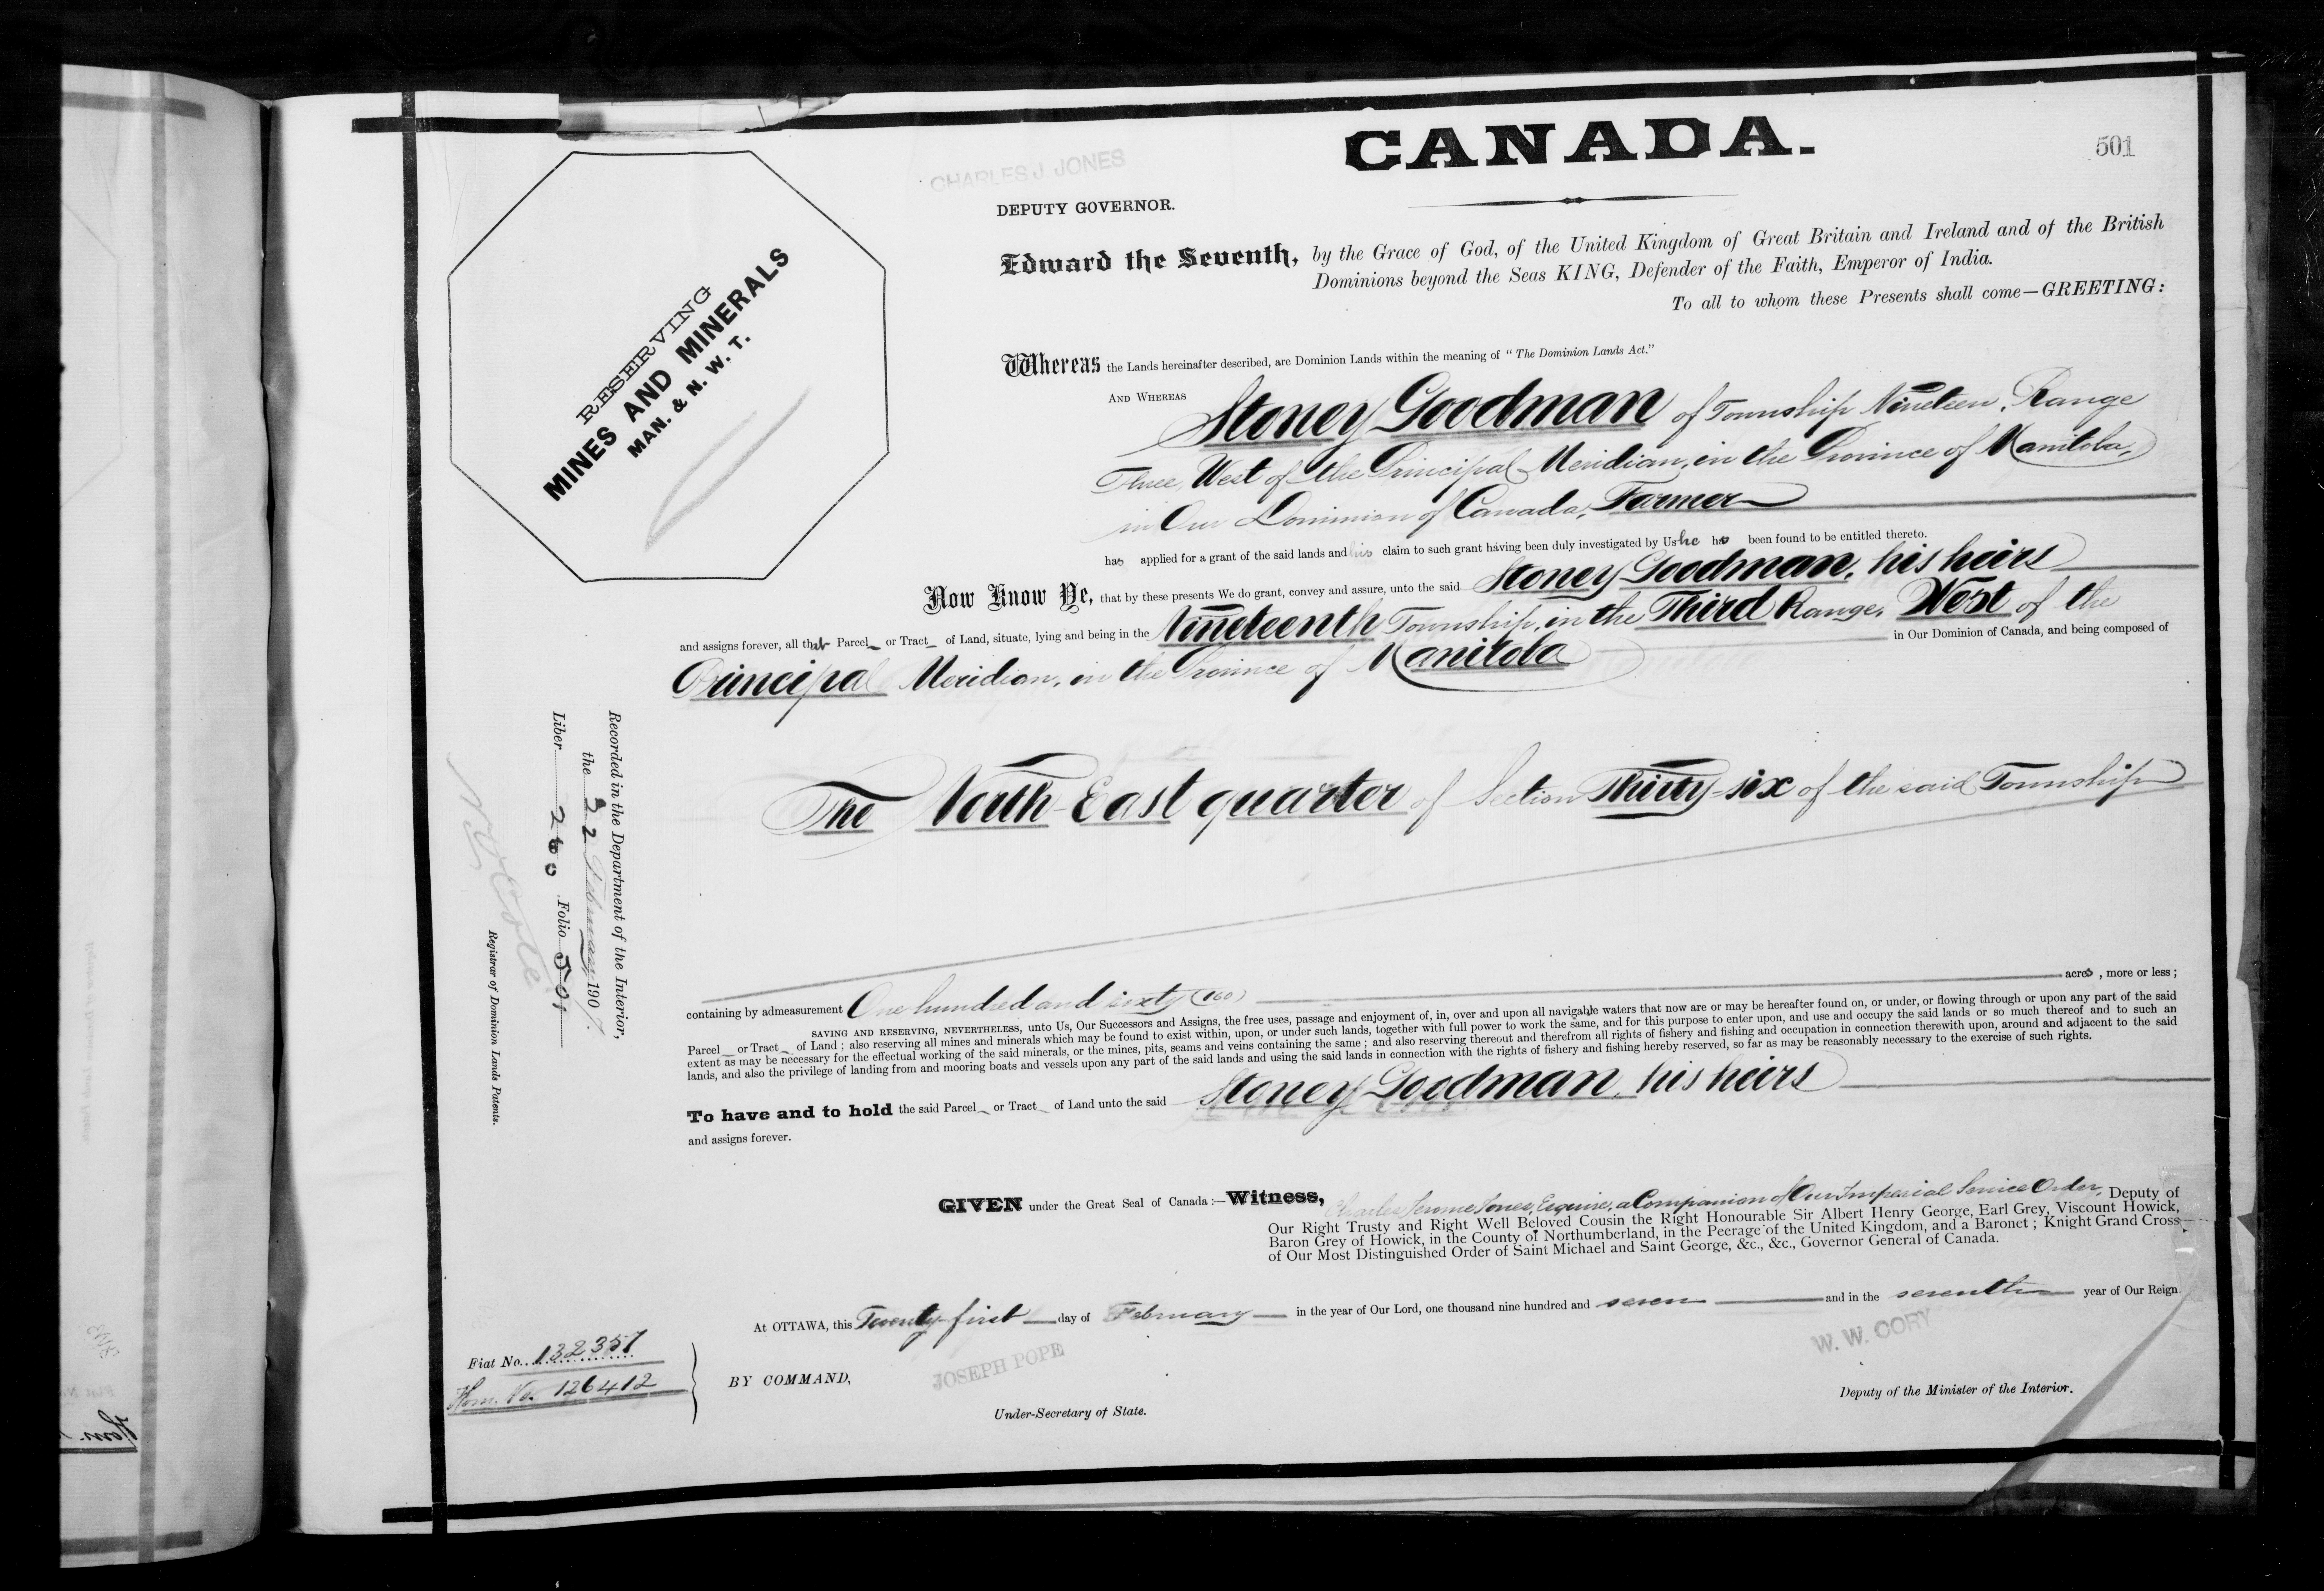 CANADA.
501
CHARLES J. JONES
DEPUTY GOVERNOR.
RESERVING
MINES AND MINERALS
MAN. & N. W. T.
Edward the Seventh, by the Grace of God, of the United Kingdom of Great Britain and Ireland and of the British
Dominions beyond the Seas KING, Defender of the Faith, Emperor of India.
To all to whom these Presents shall come—GREETING:
Whereas the Lands hereinafter described, are Dominion Lands within the meaning of "The Dominion Lands Act."
AND WHEREAS Stoney Goodman of Township Nineteen, Range
Three, West of the Principal Meridian, in the Province of Manitoba,
in Our Dominion of Canada, Farmer
has applied for a grant of the said lands and his claim to such grant having been duly investigated by Us he has been found to be entitled thereto.
Now Know Ye, that by these presents We do grant, convey and assure, unto the said Stoney Goodman, his heirs
and assigns forever, all that Parcel or Tract of Land, situate, lying and being in the Nineteenth Township, in the Third Range, West of the
Principal Meridian, in the Province of Manitoba in Our Dominion of Canada, and being composed of
The North East quarter of Section Thirty-six of the said Township
containing by admeasurement One hundred and sixty (160) acres, more or less;
SAVING AND RESERVING, NEVERTHELESS, unto Us, Our Successors and Assigns, the free uses, passage and enjoyment of, in, over and upon all navigable waters that now are or may be hereafter found on, or under, or flowing through or upon any part of the said
Parcel or Tract of Land; also reserving all mines and minerals which may be found to exist within, upon, or under such lands, together with full power to work the same, and for this purpose to enter upon, and use and occupy the said lands or so much thereof and to such an
extent as may be necessary for the effectual working of the said minerals, or the mines, pits, seams and veins containing the same; and also reserving thereout and therefrom all rights of fishery and fishing and occupation in connection therewith upon, around and adjacent to the said
lands, and also the privilege of landing from and mooring boats and vessels upon any part of the said lands and using the said lands in connection with the rights of fishery and fishing hereby reserved, so far as may be reasonably necessary to the exercise of such rights.
To have and to hold the said Parcel or Tract of Land unto the said Stoney Goodman, his heirs
and assigns forever.
GIVEN under the Great Seal of Canada:—Witness, Charles Jerome Jones, Esquire, a Companion of Our Imperial Service Order, Deputy of
Our Right Trusty and Right Well Beloved Cousin the Right Honourable Sir Albert Henry George, Earl Grey, Viscount Howick,
Baron Grey of Howick, in the County of Northumberland, in the Peerage of the United Kingdom, and a Baronet; Knight Grand Cross
of Our Most Distinguished Order of Saint Michael and Saint George, &c., &c., Governor General of Canada.
At OTTAWA, this Twenty-first day of February in the year of Our Lord, one thousand nine hundred and seven and in the seventh year of Our Reign.
BY COMMAND,
JOSEPH POPE
Under-Secretary of State.
W. W. CORY
Deputy of the Minister of the Interior.
Fiat No. 132357
Hom. No. 126412
Recorded in the Department of the Interior,
the 22 February 1907
Liber 260 Folio 501
Registrar of Dominion Lands Patents.
Hom.